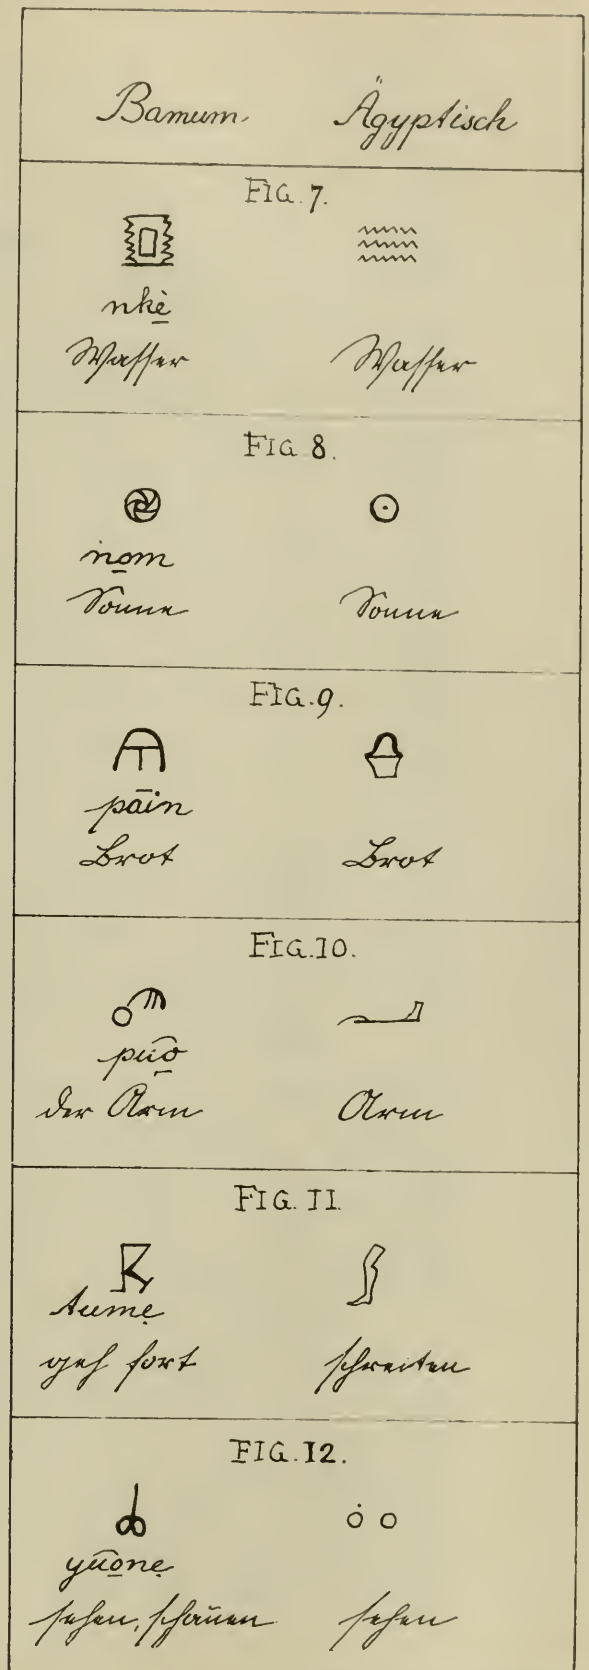 Bamum. Ägyptisch
FIG. 7.
nkè̱
Wasser Wasser
FIG 8.
no̱m
Sonne Sonne
FIG. 9.
pāin
Brot Brot
FIG. 10.
pūo̱
der Arm Arm
FIG. 11.
tumẹ
geh fort schreiten
FIG. 12.
yūo̱nẹ
sehen, schauen sehen